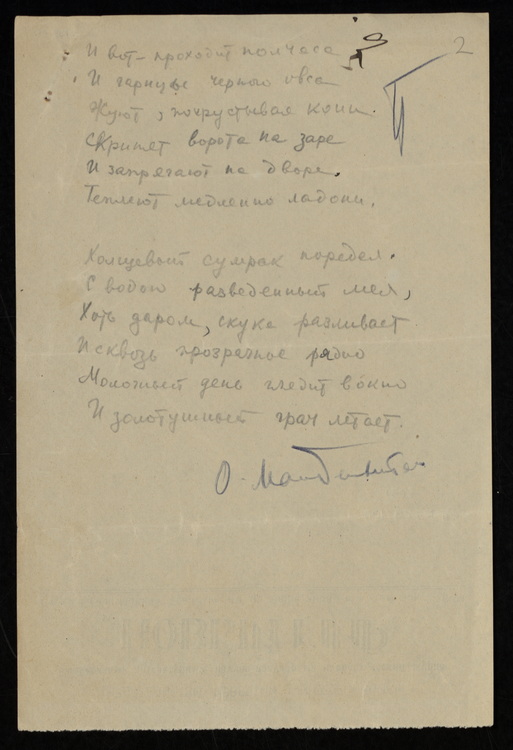 2
И вот – проходит полчаса
И гарнцы черного овса
Жуют, похрустывая кони.
Скрипят ворота на заре
И запрягают на дворе.
Теплеют медленно ладони.
Холщевый сумрак поредел.
С водою разведенный мел,
Хоть даром, скука разливает
И сквозь прозрачное рядно
Молочный день глядит в окно
И золотушный грач летает.
О. Мандельштам